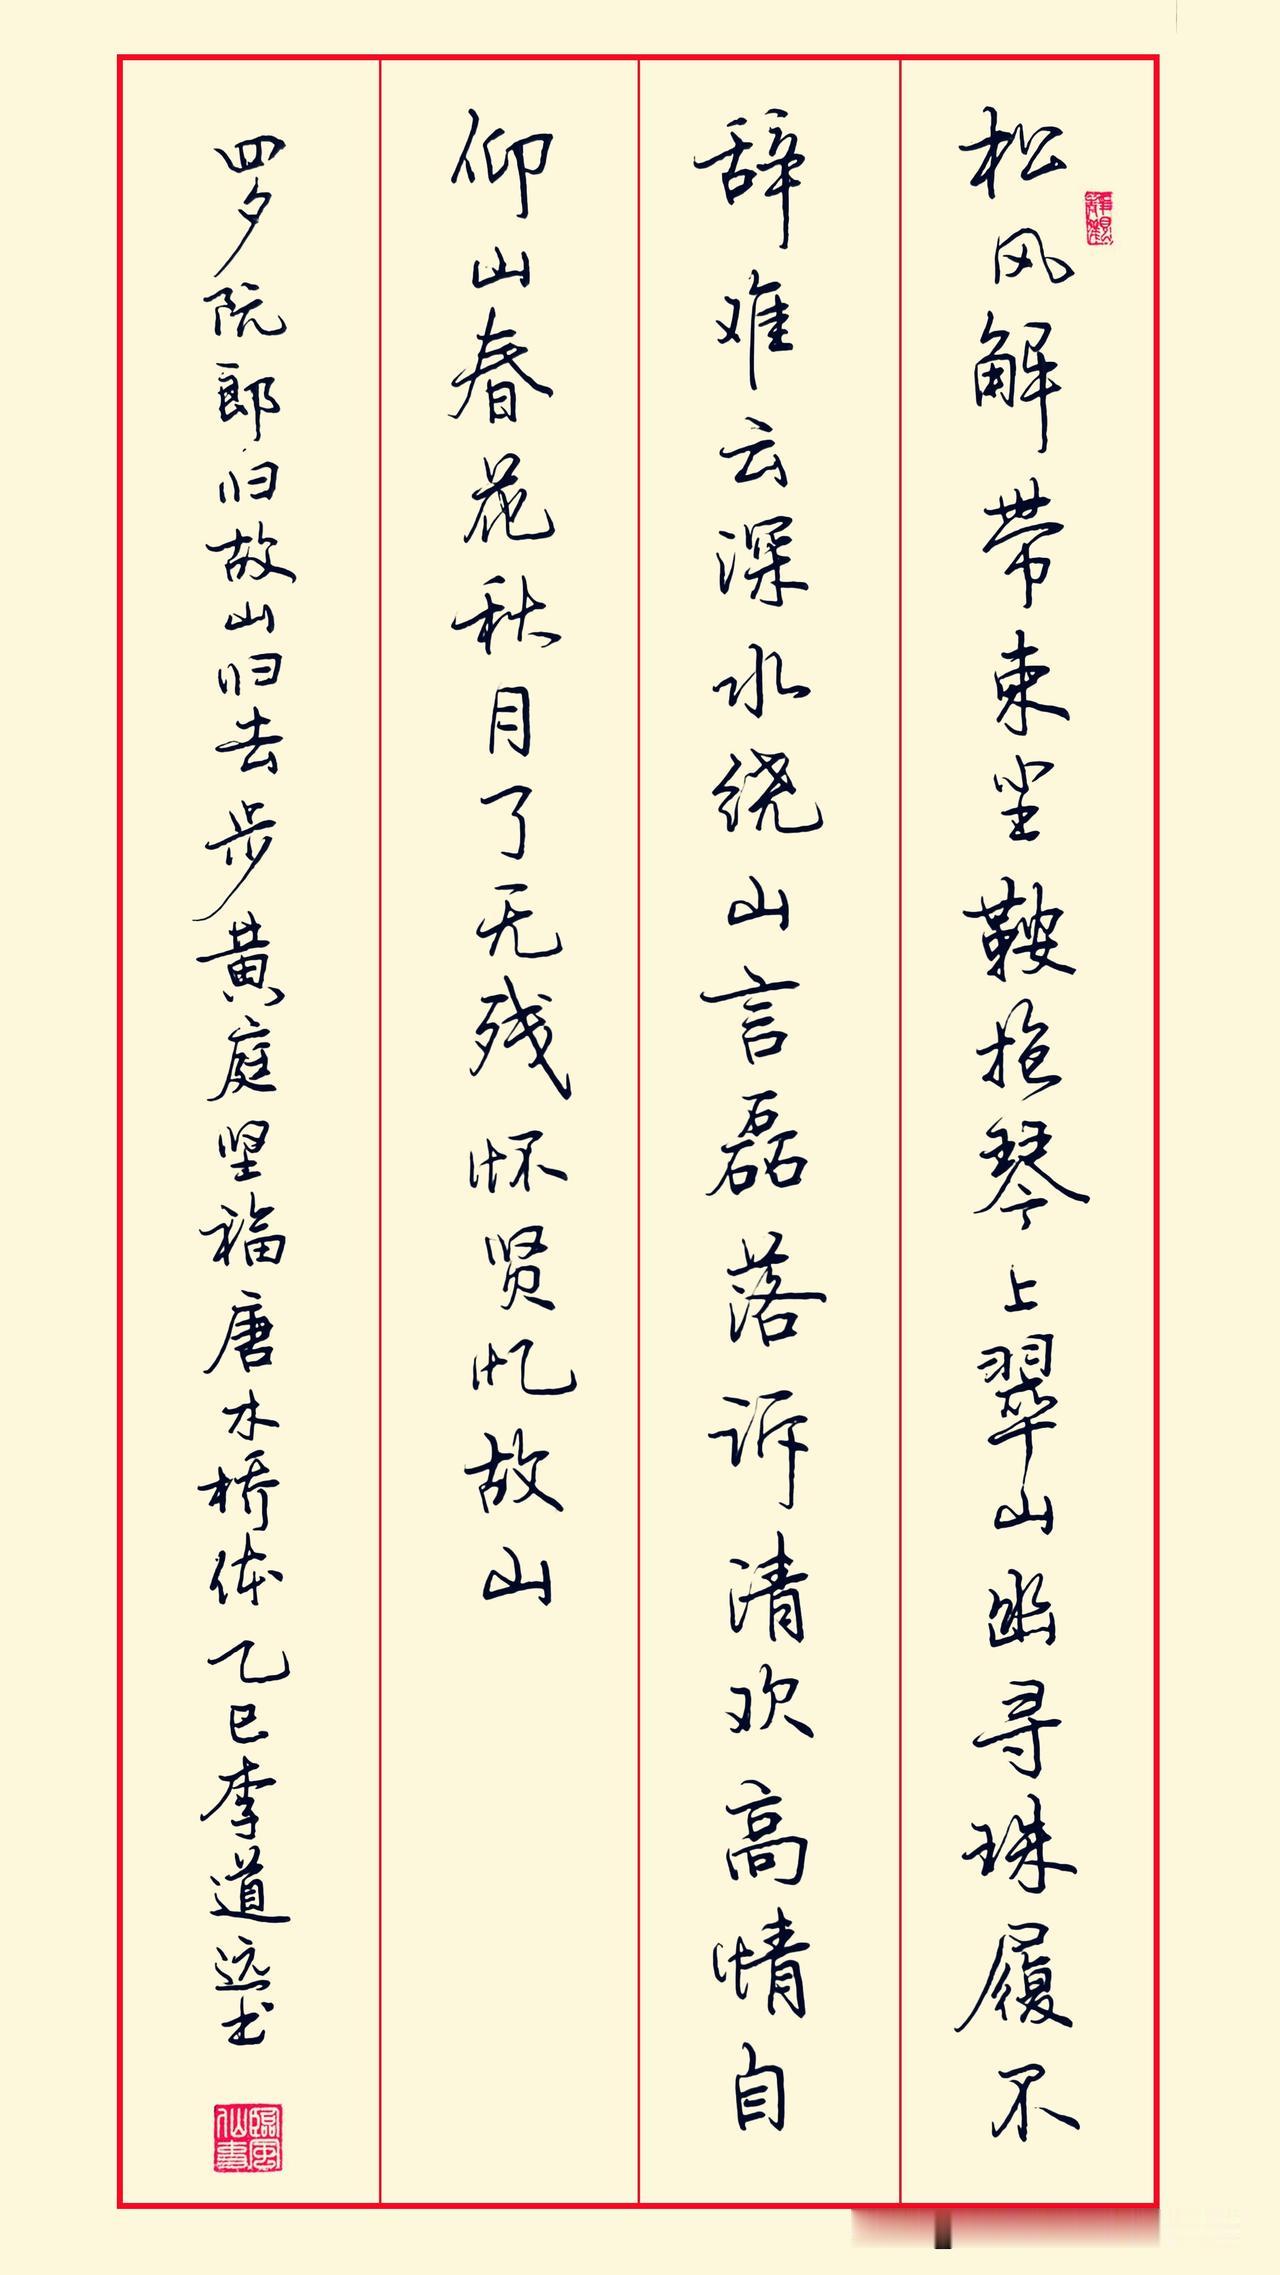 松风解带束坐鞍抱琴上翠山幽寻珠履不
辞难云深水绕山言磊落诉清欢高情自
仰山春花秋月了无残怀贤忆故山
罗阮郎归故山归去步黄庭坚福唐木桥体乙巳李道远书
临风仙书